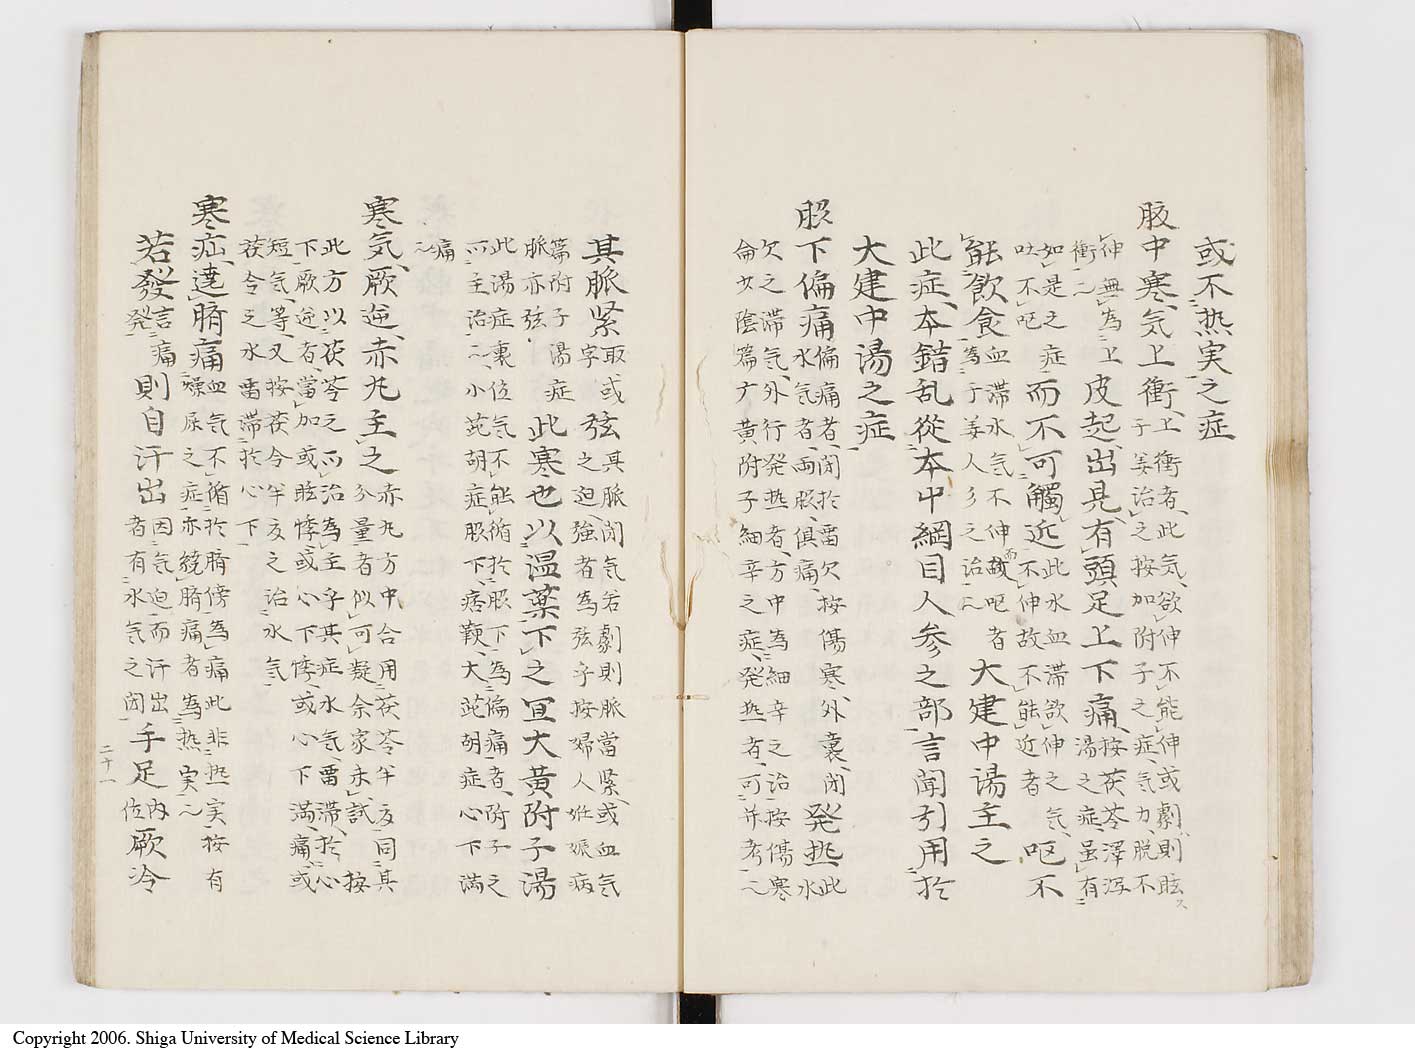 或不熱実之症
腹中寒気上衝上衝者此気欲伸不能伸或劇則眩
子姜治之按加附子之症気力脱不
伸無為上皮起出見有頭足上下痛按茯苓澤瀉
湯之症虽有
衝〻
如是之症而不可觸近此水血滞欲伸之気
吐不呕不伸故不能近者呕不
能飲食血滞水気不伸而或呕者
為于姜人参之治〻大建中湯主之
此症本錯乱從本中綱目人参之部言聞引用於
大建中湯之症
脇下偏痛偏痛者閉於雷欠按傷寒外裏閉発熱此
水気者両脇俱痛水
欠之滞気外行発熱者方中為細辛之治按傷寒
侖少陰篇麻黄附子細辛之症発熱者可并考〻
其脈緊取或弦其脈閉気若劇則脈當緊或血気
字之迫強者為弦乎按婦人妊娠病
篇附子湯症
脈亦弦此寒也以温薬下之宜大黄附子湯
此湯症裏位気不能循於脇下為偏痛者附子之
所主治〻小茈胡症脇下痞鞕大茈胡症心下満
痛
〻
寒気厥逆赤丸主之赤丸方中合用茯苓半夏同其
分量者似可疑余家未試按
此方以茯苓之所治為主乎其症水気畱滞於心
下厥逆者當加或眩悸或心下悸或心下満痛或
短気等又按茯令半夏之治水気
茯令之水畱滞於心下
寒疝遶臍痛血気不循於臍傍為痛此非熱実按有
燥屎之症亦繞臍痛者為熱実〻
若發言痛則自汗出因気迫而汗出手足内厥冷
発者有水気之閉位
二十一
Copyright 2006. Shiga University of Medical Science Library